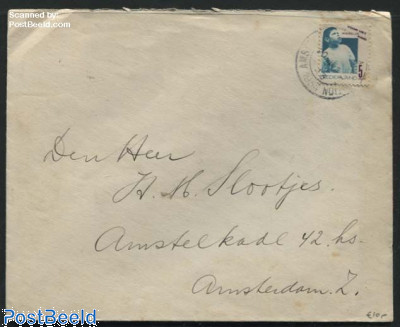 Scanned by
PostBeeld.com
5
Den Heer
H. M. Slootjes.
Amstelkade 42 hs.
Amsterdam. Z.
PostBeeld